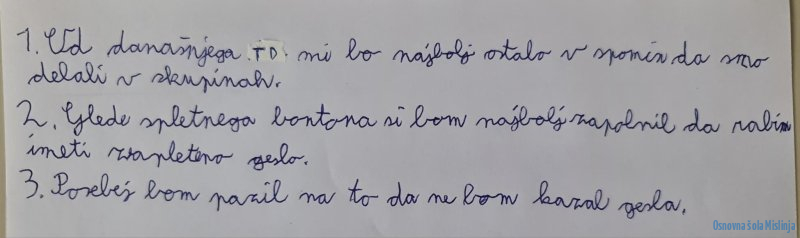 1. Od današnjega TD mi bo najbolj ostalo v spomin da smo
delali v skupinah.
2. Glede spletnega bontona si bom najbolj zapolnil da rabim
imeti zapleteno geslo.
3. Posebej bom pazil na to da ne bom kazal gesla.
Osnovna šola Mislinja